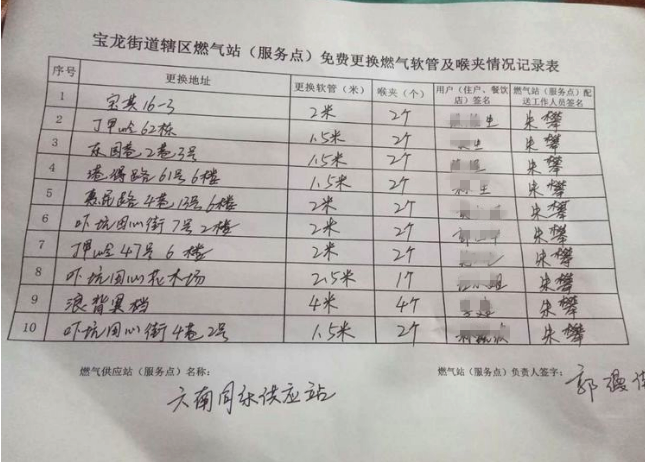 宝龙街道辖区燃气站（服务点）免费更换燃气软管及喉夹情况记录表
序号 更换地址 更换软管（米） 喉夹（个） 用户（住户、餐饮店）签名 燃气站（服务点）配送工作人员签名
1 宝英16-3 2米 2个 朱攀
2 丁甲岭62栋 1.5米 2个 朱攀
3 东园巷2巷3号 1.5米 2个 朱攀
4 路61号6楼 1.5米 2个 朱攀
5 惠民路4巷13号6楼 2米 2个 朱攀
6 吓坑同心街7号2楼 2米 2个 朱攀
7 丁甲岭47号6楼 2米 2个 朱攀
8 吓坑同心花木场 2.5米 1个 朱攀
9 浪背 档 4米 4个 朱攀
10 吓坑同心街4巷2号 1.5米 2个 朱攀
燃气供应站（服务点）名称： 燃气站（服务点）负责人签字：
供应站 郭